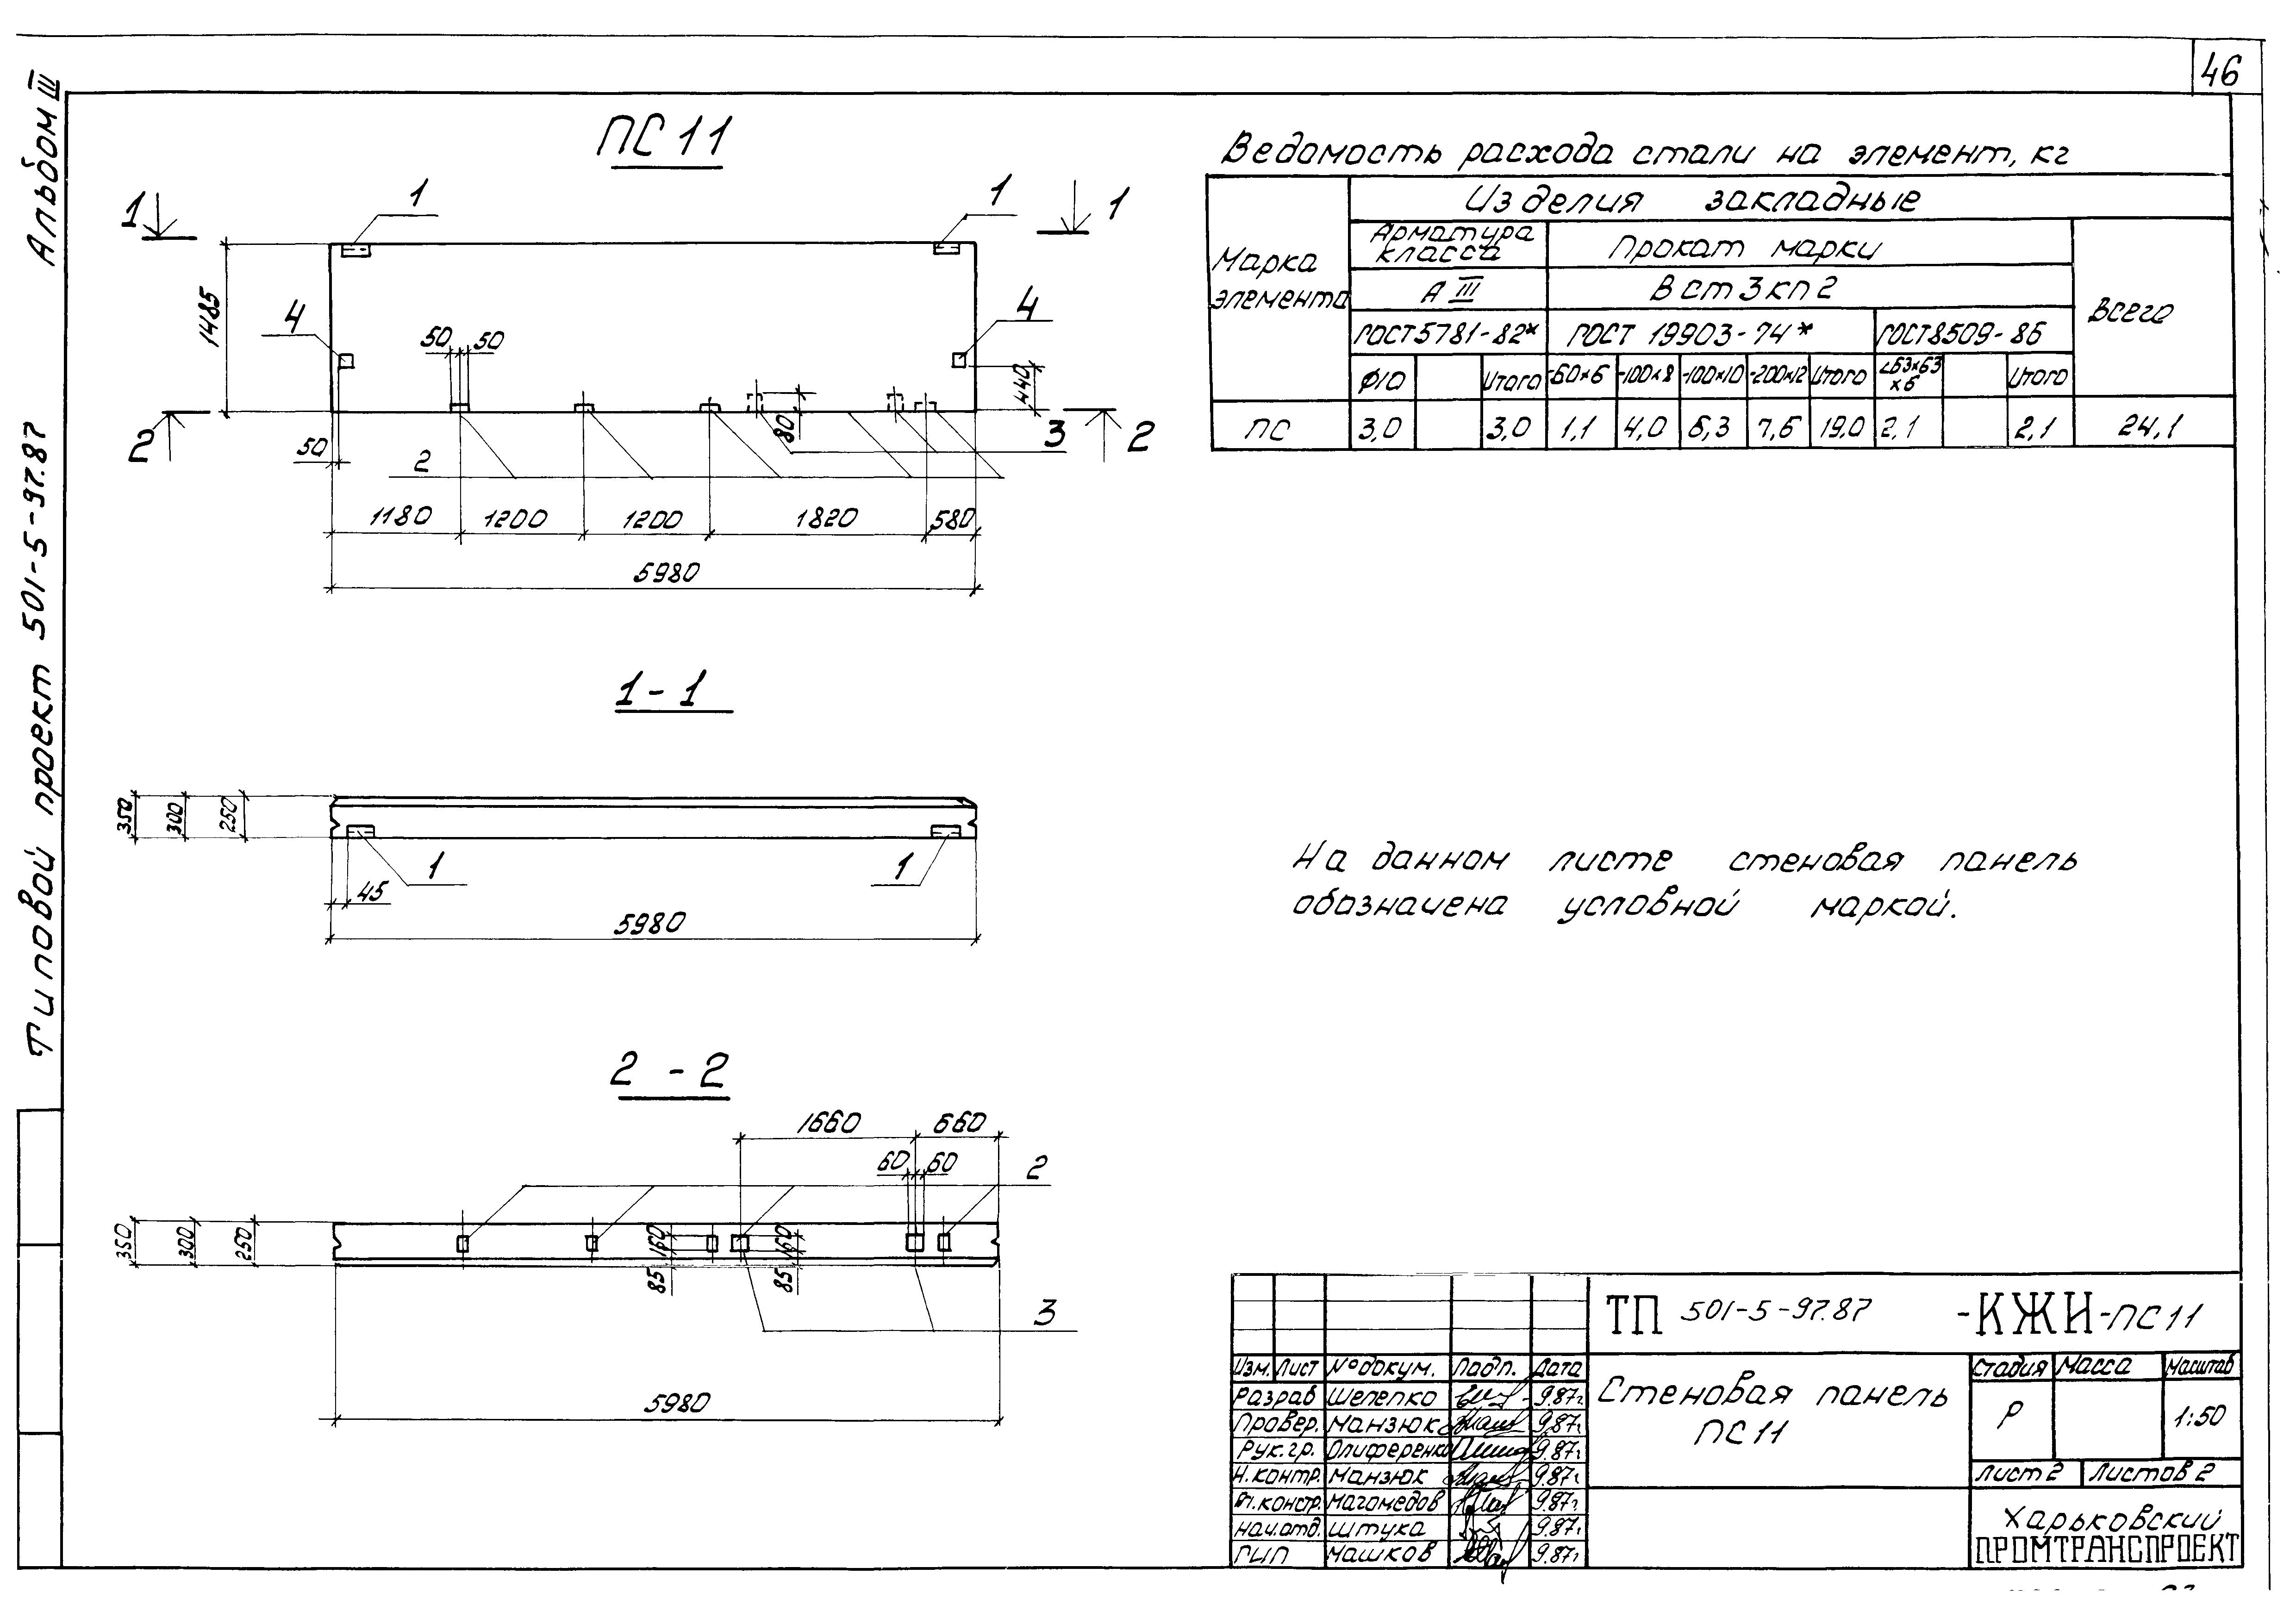 46
Альбом III
Типовой проект 501-5-97.87
ПС 11
1 1 1 1
1485
4 4
50 50
440
80
50
2 2 3 2
1180 1200 1200 1820 580
5980
1-1
350 300 250
1 1
45
5980
2-2
1660 660
60 60 2
350 300 250
160 160
85 85
3
5980
Ведомость расхода стали на элемент, кг
Марка элемента
Изделия закладные
Арматура класса
Прокат марки
Всего
А III
ВСт3кп2
ГОСТ5781-82* ГОСТ 19903-74* ГОСТ8509-86
Ø10 Итого -60×6 -100×8 -100×10 -200×12 Итого ∠63×63×6 Итого
ПС 3,0 3,0 1,1 4,0 6,3 7,6 19,0 2,1 2,1 24,1
На данном листе стеновая панель
обозначена условной маркой.
ТП 501-5-97.87 -КЖИ-ПС11
Изм. Лист № докум. Подп. Дата
Разраб Шепепко 9.87г.
Провер. Манзюк 9.87г.
Рук.гр. Олиференко 9.87г.
Н.контр. Манзюк 9.87г.
Гл.констр. Магомедов 9.87г.
Нач.отд. Штука 9.87г.
ГИП Машков 9.87г.
Стеновая панель
ПС 11
Стадия Масса Масштаб
Р 1:50
Лист 2 Листов 2
Харьковский
ПРОМТРАНСПРОЕКТ